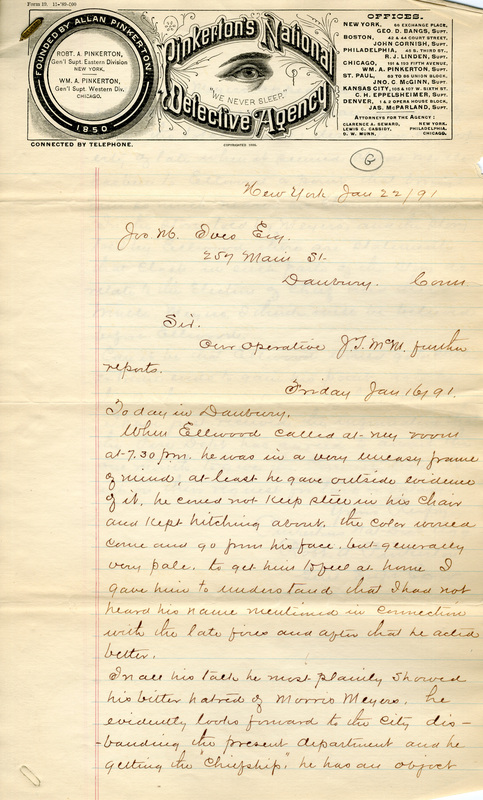 Form 10. 11-'90-500
FOUNDED BY ALLAN PINKERTON,
1850
ROBT. A. PINKERTON,
Gen'l Supt. Eastern Division
NEW YORK.
WM. A. PINKERTON,
Gen'l Supt. Western Div.
CHICAGO.
CONNECTED BY TELEPHONE.
Pinkerton's National
"WE NEVER SLEEP."
Detective Agency
OFFICES.
NEW YORK, 66 EXCHANGE PLACE,
GEO. D. BANGS, Supt.
BOSTON, 42 & 44 COURT STREET,
JOHN CORNISH, Supt.
PHILADELPHIA, 45 S. THIRD ST.,
R. J. LINDEN, Supt.
CHICAGO, 191 & 193 FIFTH AVENUE,
WM. A. PINKERTON, Supt.
ST. PAUL, 85 TO 86 UNION BLOCK,
JNO. C. McGINN, Supt.
KANSAS CITY, 105 & 107 W. SIXTH ST.
C. H. EPPELSHEIMER, Supt.
DENVER, 1 & 2 OPERA HOUSE BLOCK,
JAS. McPARLAND, Supt.
ATTORNEYS FOR THE AGENCY:
CLARENCE A. SEWARD, NEW YORK.
LEWIS C. CASSIDY, PHILADELPHIA.
D. W. MUNN, CHICAGO.
G
New York Jan 22/91
Jos M. Ives Esq.
257 Main St
Danbury. Conn
Sir.
Our Operative J.T. McM. further
reports.
Friday Jan 16/91.
To day in Danbury.
When Ellwood called at my room
at 7.30 pm. he was in a very uneasy frame
of mind, at least he gave outside evidence
of it. he could not keep still in his chair
and kept hitching about. the color would
come and go from his face. but generally
very pale. to get him to feel at home I
gave him to understand that I had not
heard his name mentioned in connection
with the late fires and after that he acted
better.
In all his talk he most plainly showed
his bitter hatred of Morris Meyers. he
evidently looks forward to the City dis-
-banding the present department and he
getting the "Chiefship." he has an object